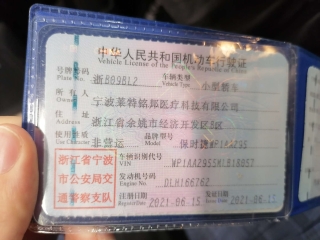 中华人民共和国机动车行驶证
Vehicle License of the People's Republic of China
号牌号码 浙B09BL2 车辆类型 小型轿车
Plate No.
所有人 宁波莱特铭邦医疗科技有限公司
Owner
住址 浙江省余姚市经济开发区B区
Address
使用性质 非营运 品牌型号 保时捷WP1AA295
Use Character
浙江省宁波
市公安局交
通警察支队
车辆识别代号
VIN
发动机号码 DLH166762
Engine No.
注册日期 2021-06-15 发证日期 2021-06-15